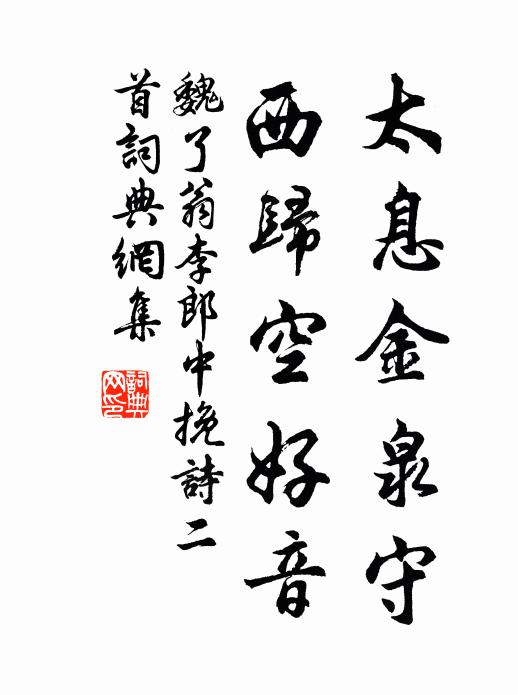 太息金泉守
西歸空好音
魏了翁李郎中挽詩二
首詞典網集
詞典
网印